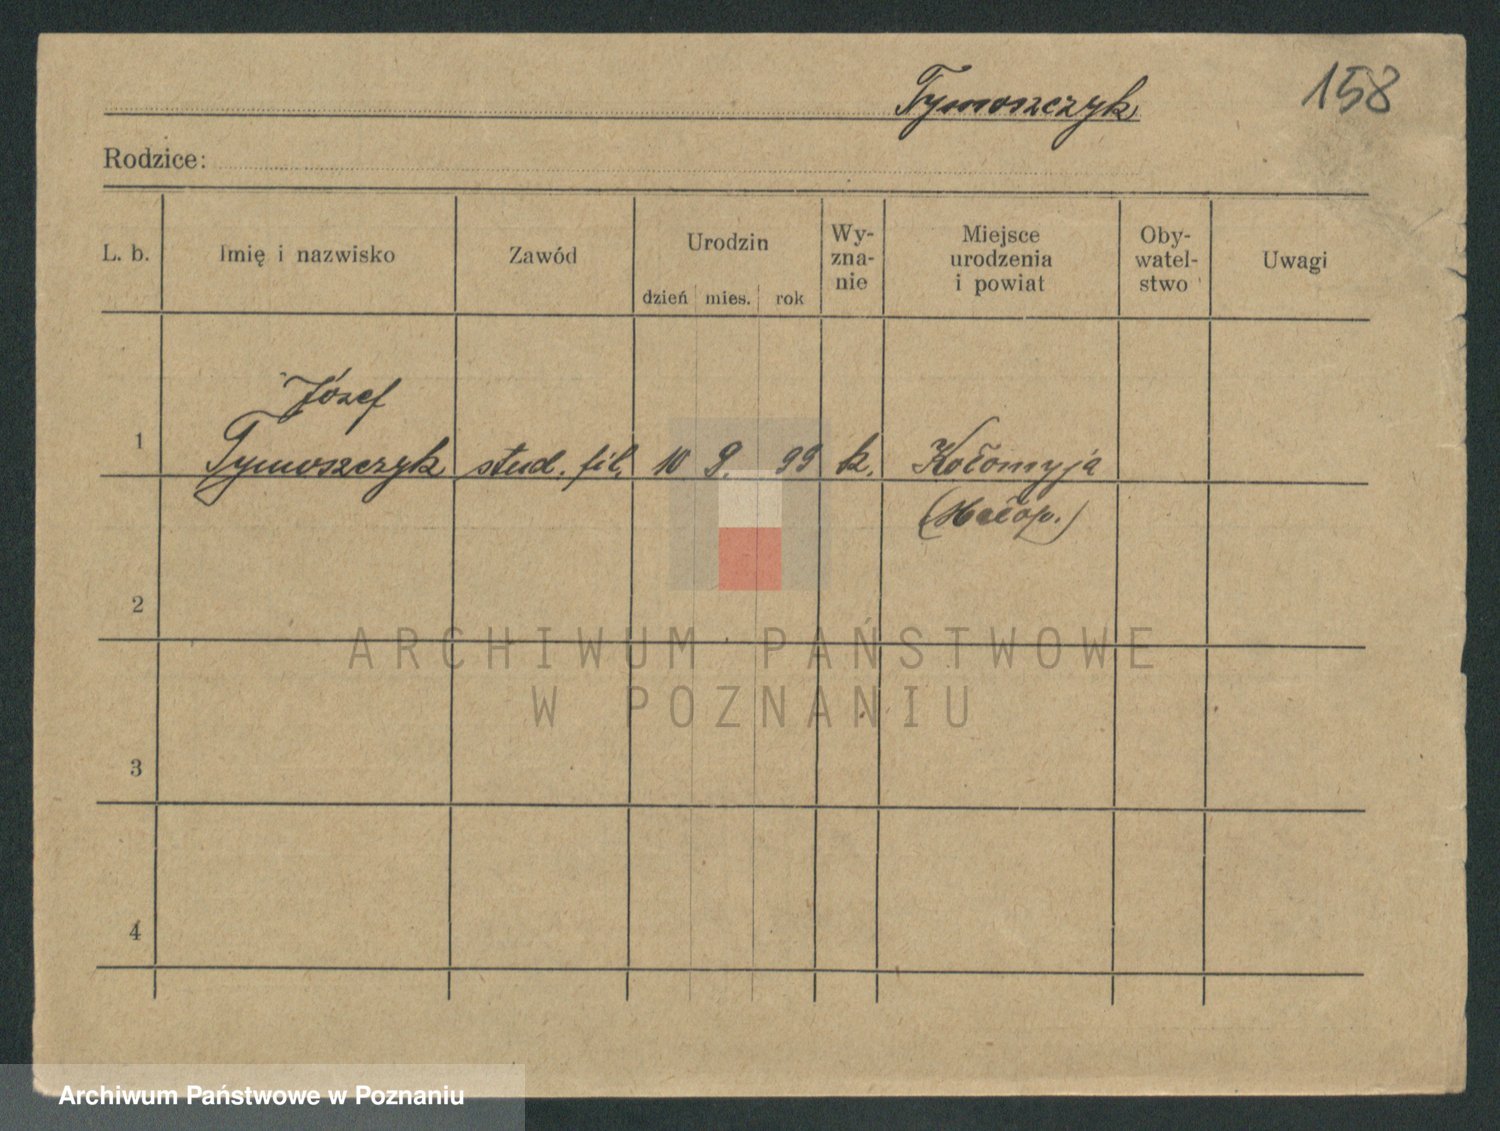 Tymoszczyk
158
Rodzice:
L. b.
Imię i nazwisko
Zawód
Urodzin
dzień mies. rok
Wy-
zna-
nie
Miejsce
urodzenia
i powiat
Oby-
watel-
stwo
Uwagi
Józef
1 Tymoszczyk stud. fil. 10 9. 99 k. Kołomyja
(Małop.)
2
3
4
ARCHIWUM PAŃSTWOWE
W POZNANIU
Archiwum Państwowe w Poznaniu